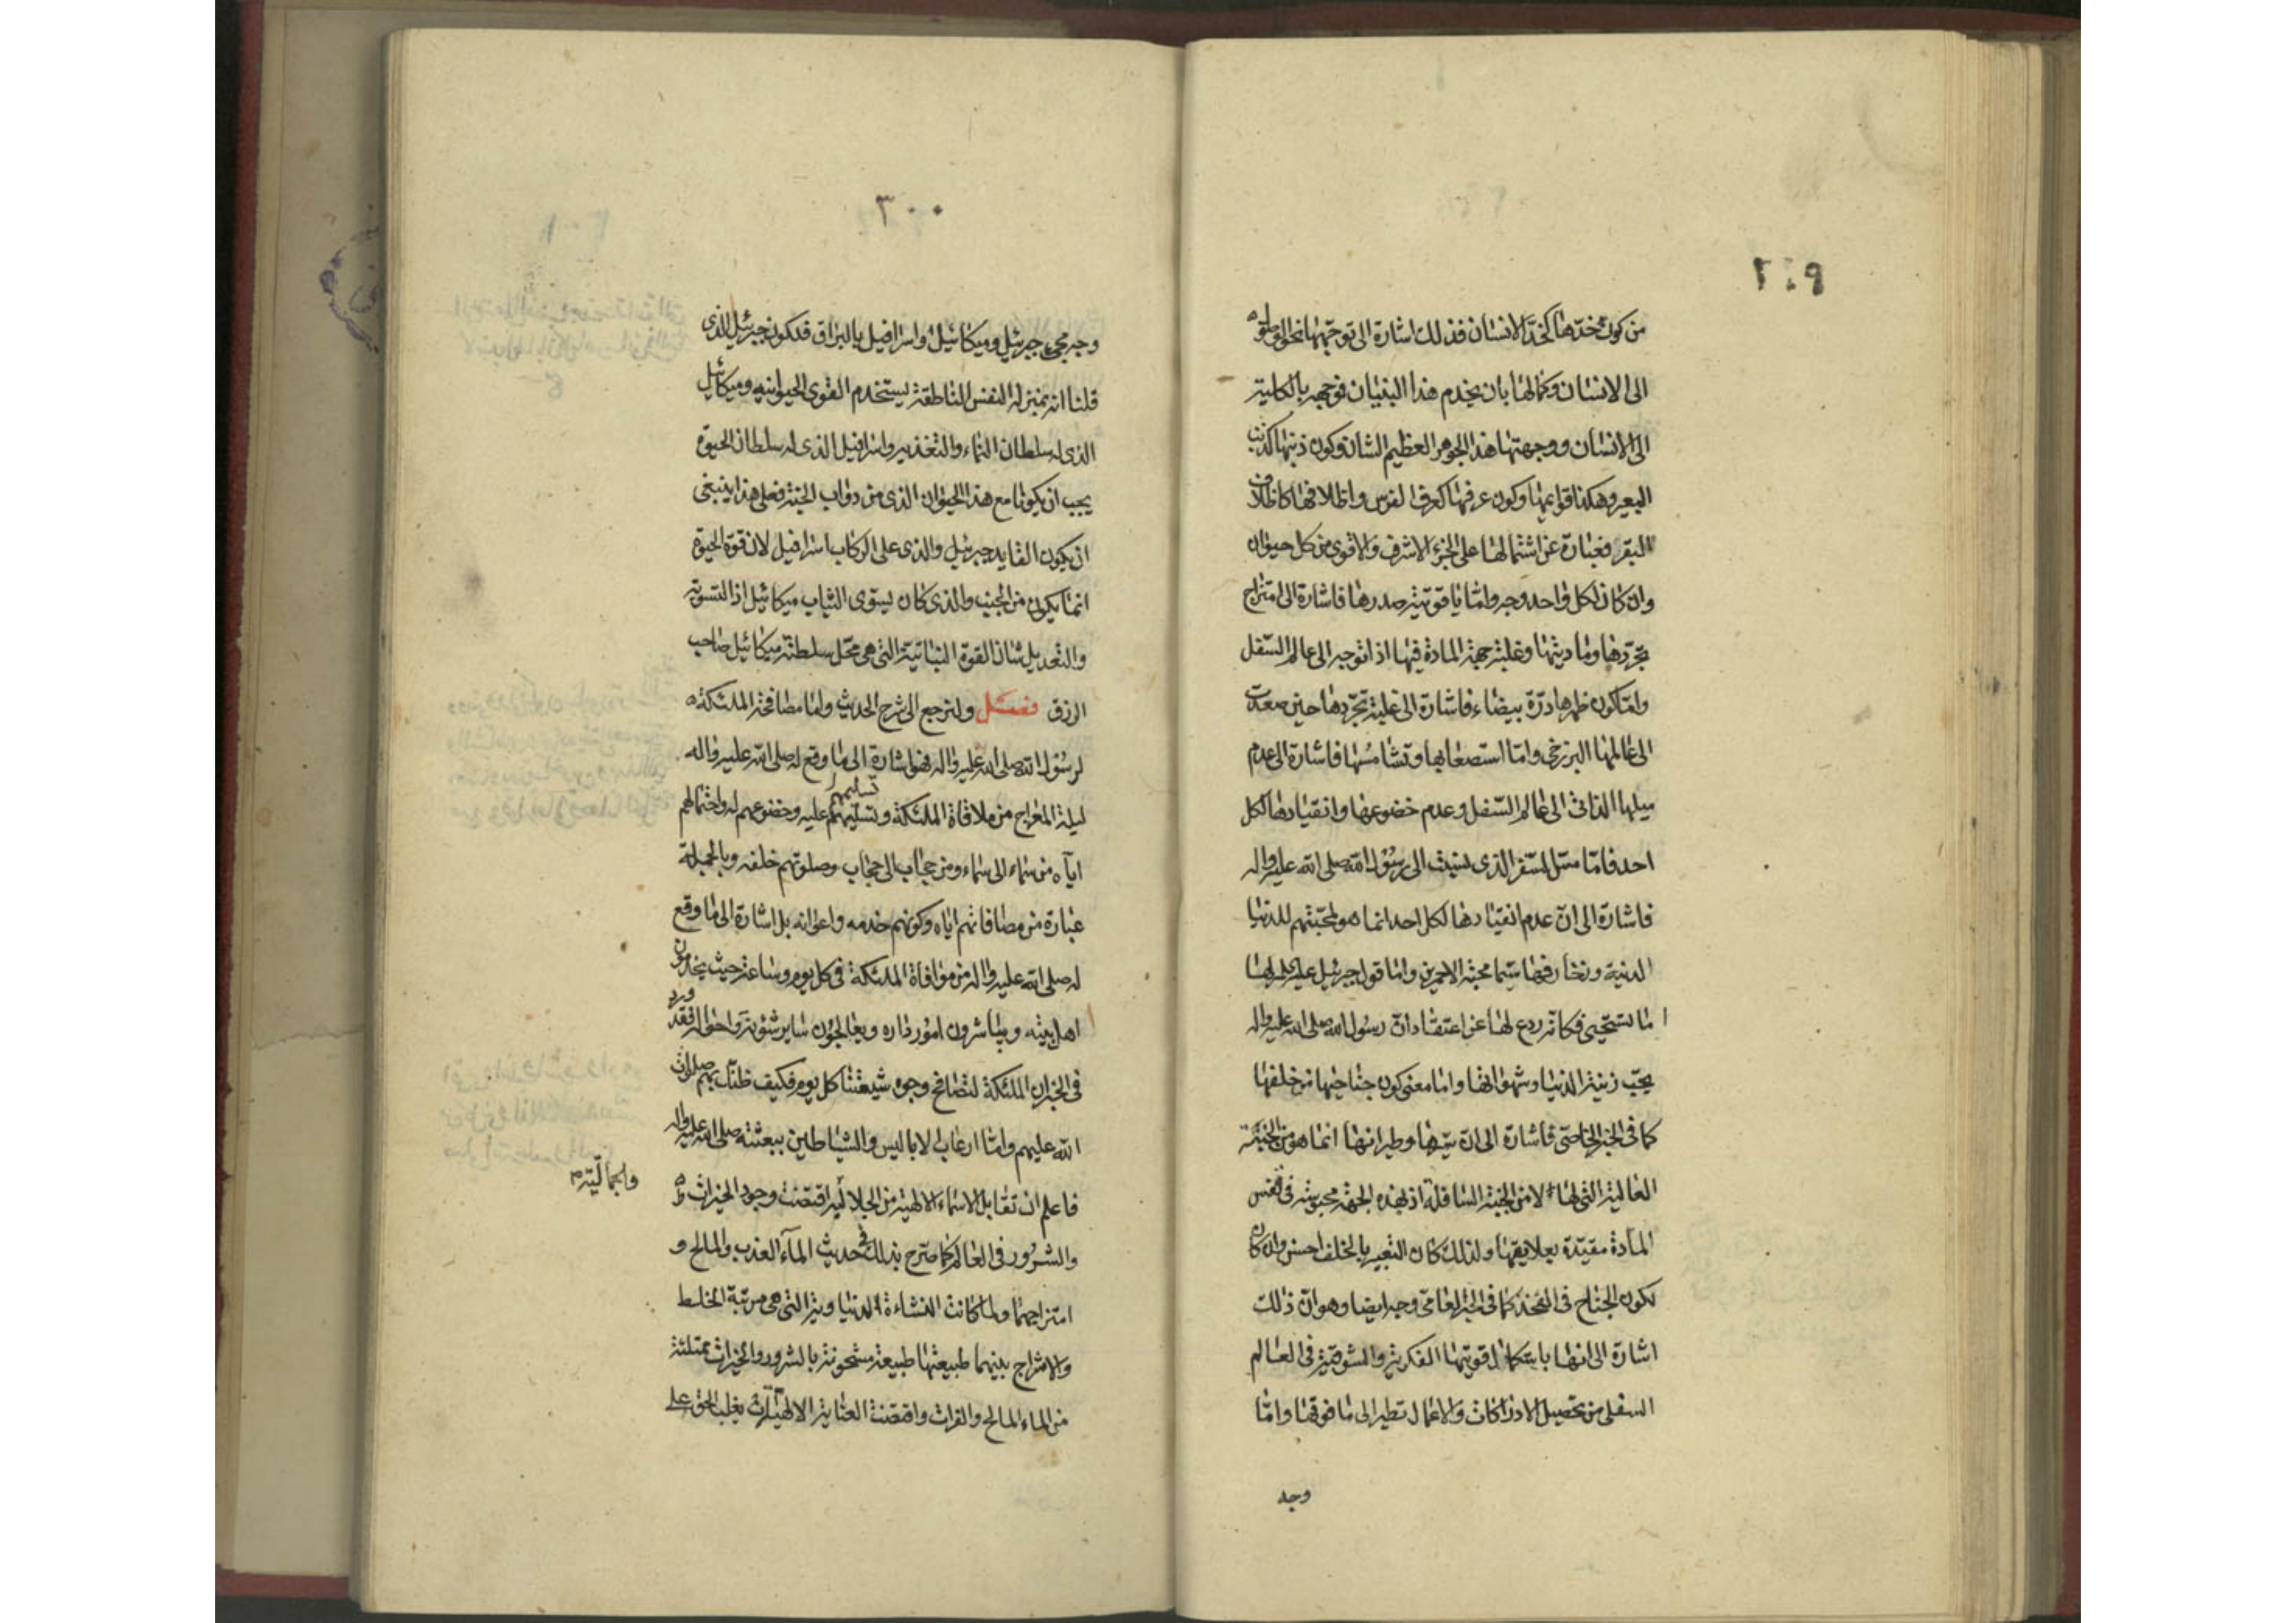 من كون خدّها كخدّ الانسان فذلك اشارة الى توجّهها نحو
الى الانسان وكمالها بان يخدم هذا البنيان فوجهه بالكلية
الى الانسان ووجهتها هذا الجوهر العظيم الشان وكون ذنبها كذنب
البعير وهكذا قوائمها وكون عرفها كعرف الفرس واظلافها كاظلاف
البقر فعبارة عن اشتمالها على الجزء الاشرف والاقوى من كل حيوان
وان كان لكل واحد وجه واما ياقوتية صدرها فاشارة الى امتزاج
تجرّدها وماديتها وغلبة جهة المادة فيها اذا توجه الى عالم السّفل
وامّا كون ظهرها درّة بيضاء فاشارة الى غلبة تجرّدها حين صعدت
الى عالمها البرزخى وامّا استصعابها وتشامسها فاشارة الى عدم
ميلها الذاتى الى عالم السّفل وعدم خضوعها وانقيادها لكل
احد فامّا مسّ الصّفر الذى نسبت الى رسُول الله صلى الله عليه واله
فاشارة الى انّ عدم انقيادها لكل احد انما هو لمحبّتهم للدنيا
الدنية وزخارفها سيّما محبة الاحمرين واما قول جبرئيل عليه السلم لها
ما تستحيى فكانه ردع لها عن اعتقاد انّ رسُول الله صلى الله عليه واله
يحبّ زينة الدنيا وشهواتها واما معنى كون جناحيها من خلفها
كما فى الخبر الخاصّى فاشارة الى انّ سيرها وطيرانها انما هو من الجنبة
العالية التى لها لا من الجنبة السافلة اذ بهذه الجهة محبوسة فى قفس
المادة مقيّدة بعلايقها ولذلك كان التعبير بالخلف احسن وان كان
لكون الجناح فى الفخذ كما فى الخبر العامّى وجه ايضا وهو انّ ذلك
اشارة الى انها باستكمال قوتيها الفكرية والشوقية فى العالم
السفلى من تحصيل الادراكات والاعمال تطير الى ما فوقها وامّا
وجه
٣٠٠
وجه مجىء جبرئيل وميكائيل واسرافيل بالبراق فلكون جبرئيل الذى
قلنا انه بمنزلة النفس الناطقة يستخدم القوى الحيوانية وميكائيل
الذى له سلطان النماء والتغذية واسرافيل الذى له سلطان الحيوة
يجب ان يكونا مع هذا الحيوان الذى من دواب الجنة فعلى هذا ينبغى
ان يكون القايد جبرئيل والذى على الركاب اسرافيل لان قوة الحيوة
انما يكون من الجنب والذى كان يسوّى الثياب ميكائيل اذ التسوية
والتعديل شان القوة النباتية التى هى محلّ سلطنة ميكائيل صاحب
الرزق فصل ولنرجع الى شرح الحديث واما مصافحة الملئكة
لرسُول الله صلى الله عليه واله فهو اشارة الى ما وقع له صلى الله عليه واله
ليلة المعراج من ملاقاة الملئكة وتسليمهم عليه وخضوعهم له واحتمالهم
تسليمهم
ايّاه من سماء الى سماء ومن حجاب الى حجاب وصلوتهم خلفه وبالجملة
عبارة من مصافاتهم اياه وكونهم خدمه واعوانه بل اشارة الى ما وقع
له صلى الله عليه واله من موافاة الملئكة فى كل يوم وساعة حيث يخدمون
اهل بيته ويباشرون امور داره ويعالجون ساير شئونه واحواله فقد ورد
فى الخبر ان الملئكة لتصافح وجوه شيعتنا كل يوم فكيف ظنك بهم صلوات
الله عليهم وامّا ارعاب الاباليس والشياطين ببعثته صلى الله عليه واله
فاعلم ان تقابل الاسماء الالهية من الجلالية اقتضت وجود الخيرات
والجمالية
والشرور فى العالم كما صرّح بذلك فى حديث المآء العذب والمالح و
امتزاجهما ولما كانت النشاءة الدنياوية التى هى مرتبة الخلط
والامتزاج بينهما طبيعتها طبيعة مشحونة بالشرور والخيرات ممتلئة
من الماء المالح والفرات واقتضت العناية الالهية ان يغلب الحق على